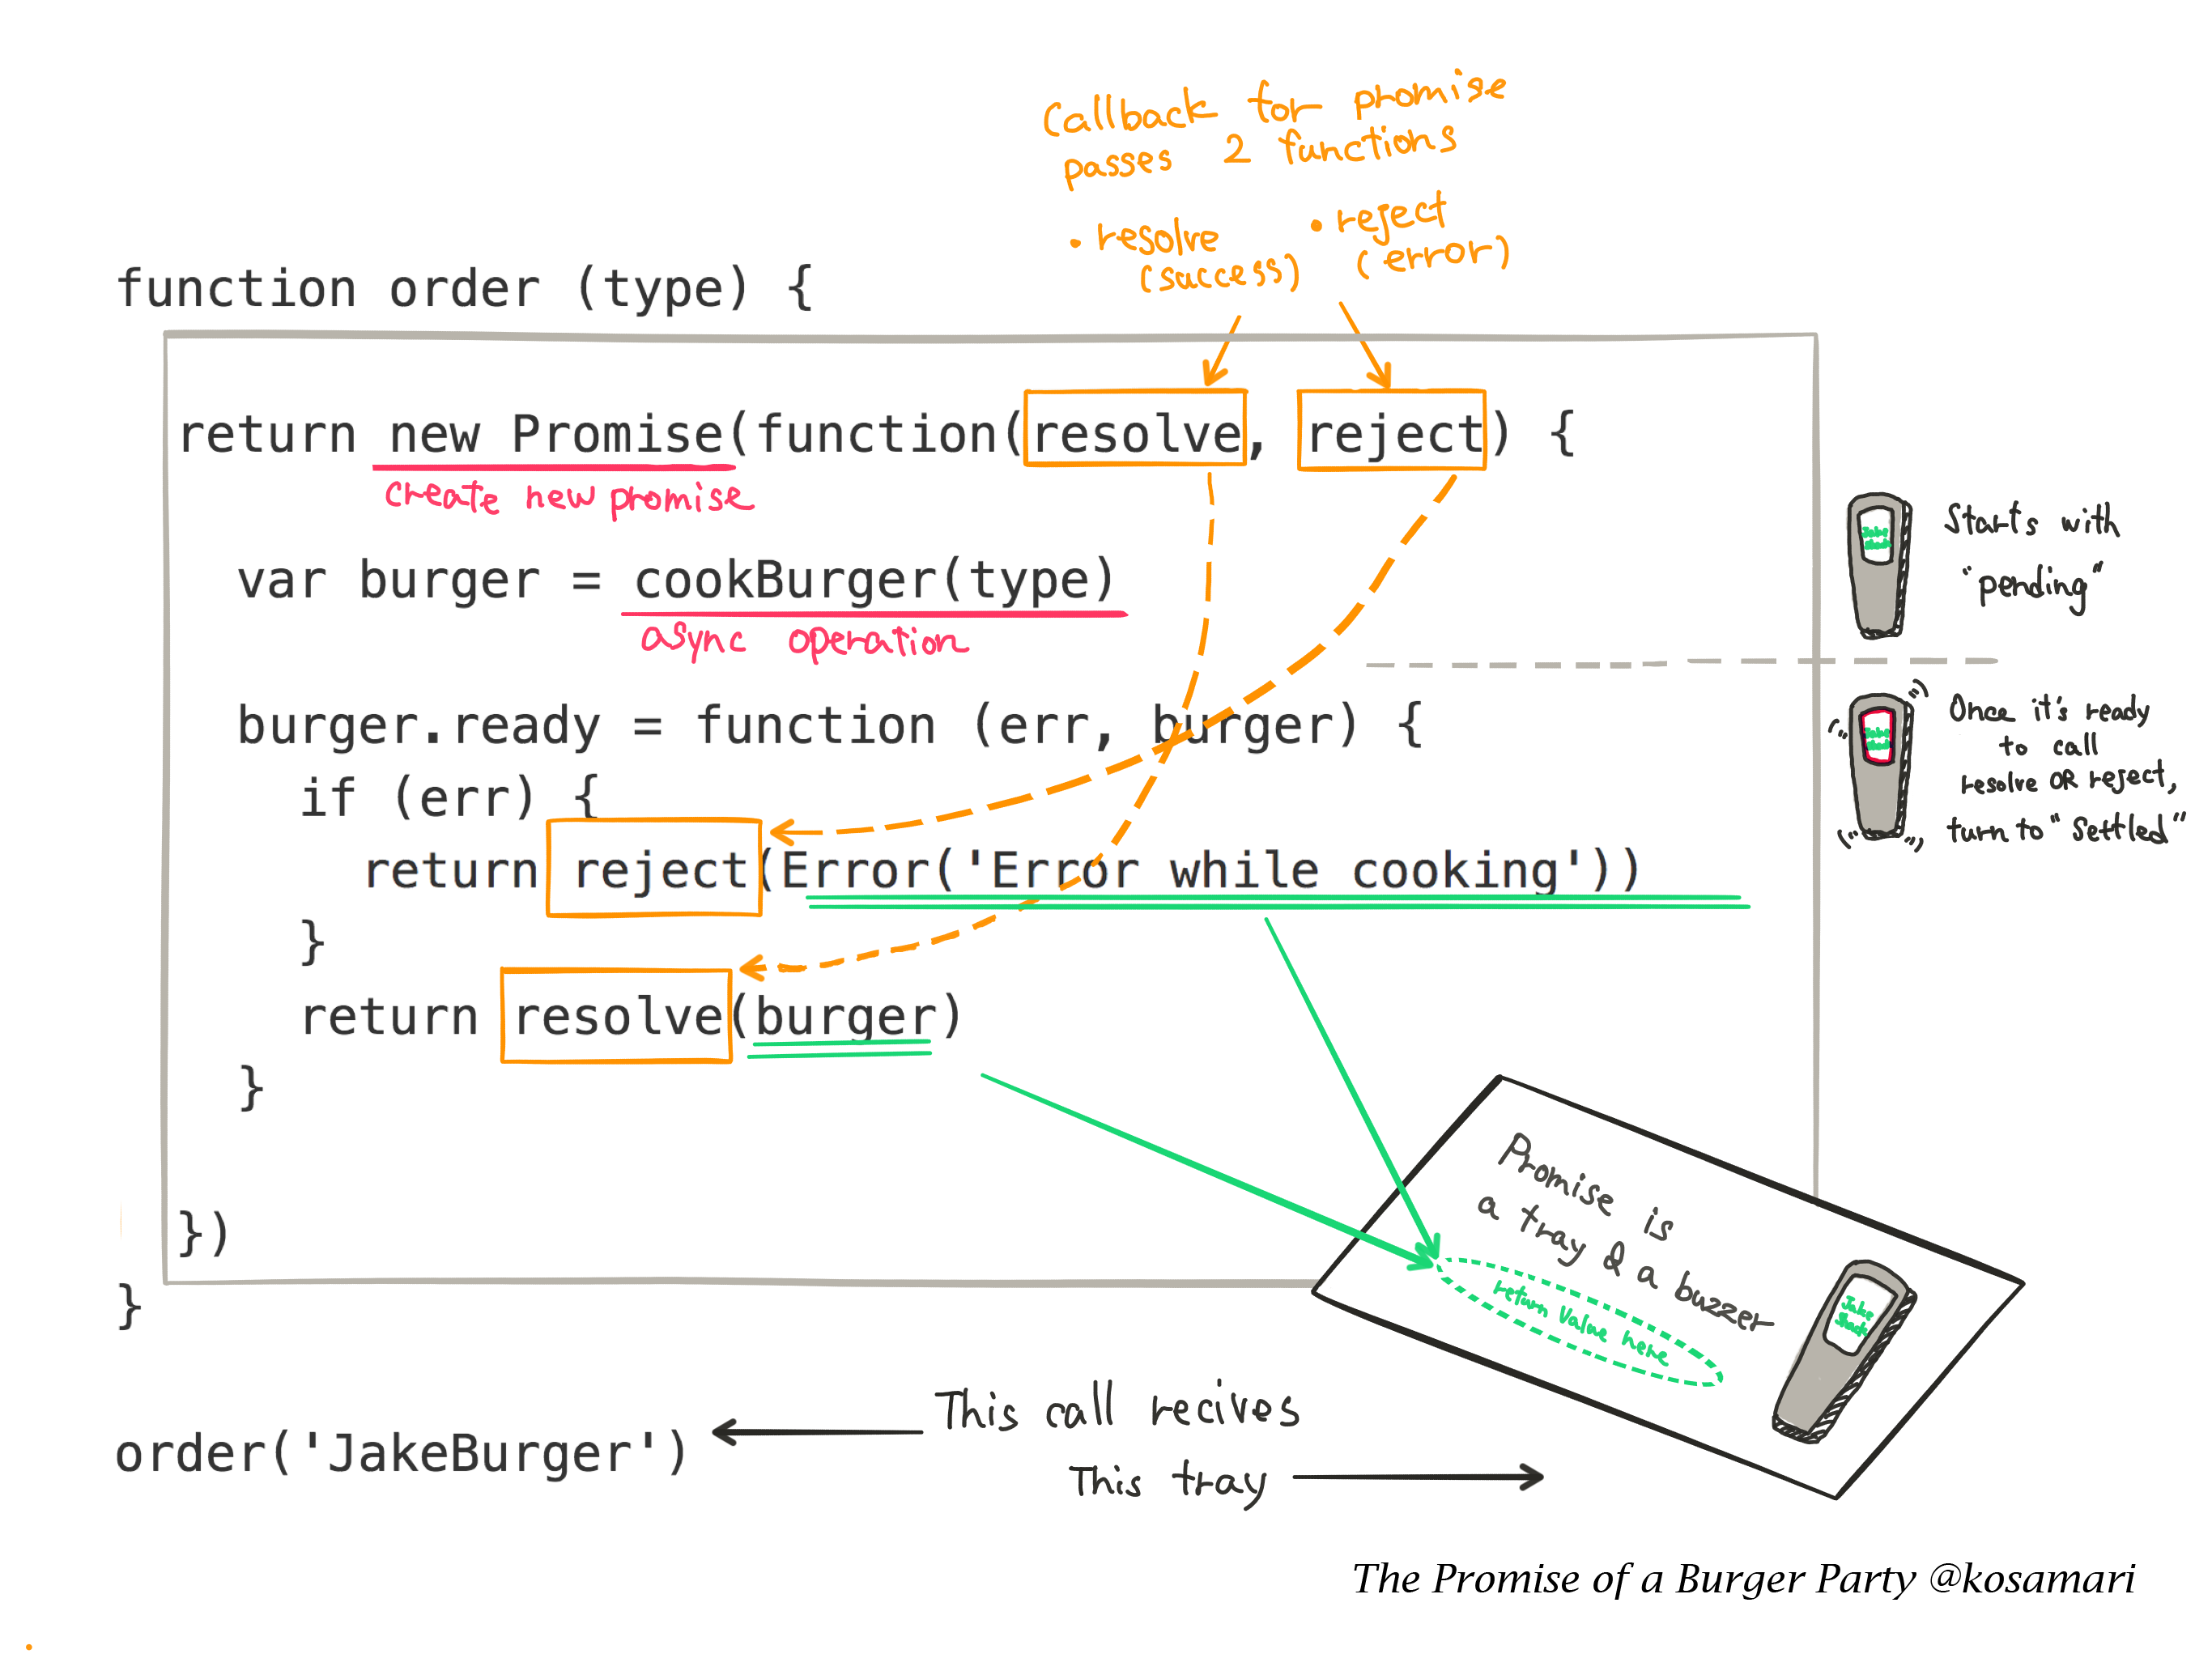 Callback for promise
passes 2 functions
• resolve
(success)
• reject
(error)
function order (type) {
return new Promise(function(resolve, reject) {
create new promise
var burger = cookBurger(type)
async operation
Starts with
"pending"
burger.ready = function (err, burger) {
if (err) {
return reject(Error('Error while cooking'))
}
return resolve(burger)
}
})
}
Once it's ready
to call
resolve OR reject,
turn to "settled"
Promise is
a tray & a buzzer
return value here
order('JakeBurger')
This call recives
This tray
The Promise of a Burger Party @kosamari